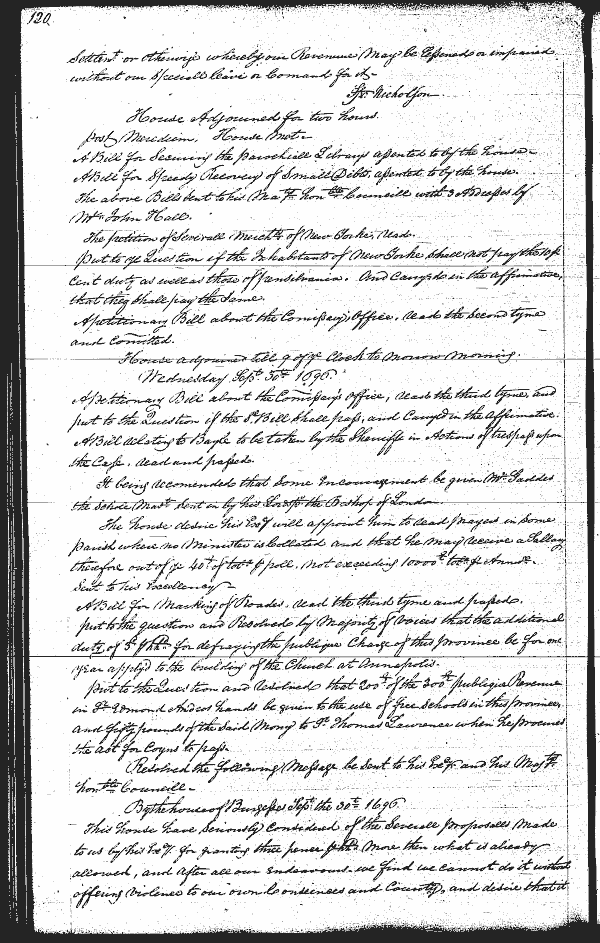 120
Settlem.t or otherwise whereby our Revenue May be Lessened or impaired
without our Speciall leave or Comand for it -
Ffr: Nicholson
House Adjourned for two hours.
post Meredien. House Met -
A Bill for Secureing the parochiall Library assented to by the house -
A Bill for Speedy Recovery of Small Debts, assented to by the house.
The above Bills sent to his Ma.ty Hon.ble Councill with 3 Adresses by
M.r John Hall.
The petition of Severall Merch.ts of New Yorke, read.
Put to y.e Question if the Inhabitants of New Yorke Shall not pay the 10 p
cent duty as well as those of pensilvania. And Carryed in the affirmative,
that they shall pay the same.
A petitionary Bill about the Comissarys Office, read the second tyme
and Comitted.
House adjourned till 9 of y.e Clock to morrow morning.
Wednesday Sep.t 30.th 1696.
A petitionary Bill about the Comissarys Office, read the third tyme, and
put to the Question if the s.d Bill shall pass, and Carryed in the Affirmative.
A Bill relating to Bayle to be taken by the Sherriffs in Actions of trespass upon
the Case, read and passed.
It being recomended that some Encouragement be given M.r Gaddes
the Schole Mast.r sent in by his Lordsp the Bishop of London
The house desire his Ex.cy will appoint him to read prayers in Some
parish where no Minister is Collated and that he May receive a Sallary
therefore out of y.e 40.l of tob.o p poll, not exceeding 10000.l tob.o p Annu.
Sent to his Excellency
A Bill for Marking of Roades, read the third tyme and passed.
put to the question and Resolved by Majority of voices that the additional
duty of 3.d p hhd for defraying the publique Charge of this Province be for one
year apply.d to the building of the Church at Annapolis.
Put to the Question and resolved that 200.l of the 300.l publique Revenue
in S.r Edmond Andros hands be given to the use of free schools in this province,
and fifty pounds of the said Mony to S.r Thomas Lawrence when he procures
the act for Coyns to pass.
Resolved the following Message be sent to his Ex.cy and his Maj.ty
hon.ble Councill -
By the house of Burgesses Sep.t the 30.th 1696
This house have seriously Considered of the Severall proposalls Made
to us by his Ex.cy for granting three pence p hhd More then what is already
allowed, and after all our Endeavours we find we cannot do it without
offering violence to our own Consciences and Country, and desire that it